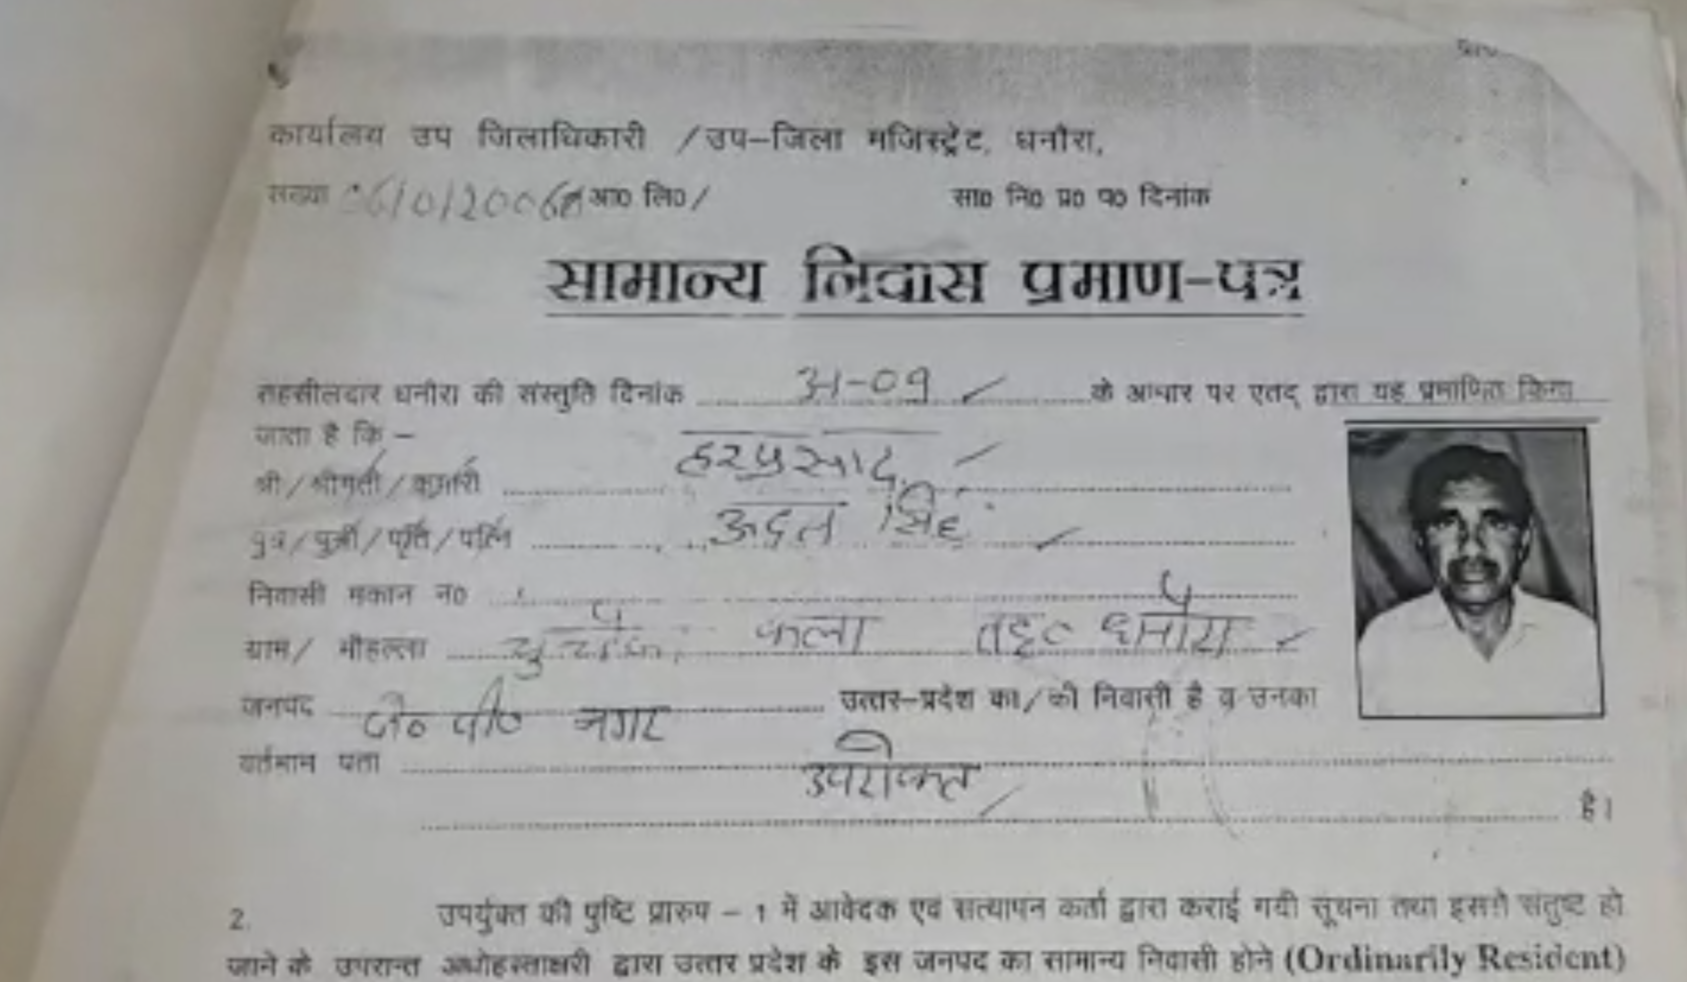 कार्यालय उप जिलाधिकारी / उप-जिला मजिस्ट्रेट, धनौरा,
संख्या अ0 लि0/ सा0 नि0 प्र0 प0 दिनांक
सामान्य निवास प्रमाण-पत्र
तहसीलदार धनौरा की संस्तुति दिनांक के आधार पर एतद् द्वारा यह प्रमाणित किया
जाता है कि –
श्री/श्रीमती/कुमारी हरप्रसाद
पुत्र/पुत्री/पति/पत्नि सिंह
निवासी मकान न0
ग्राम/ मौहल्ला कला धनौरा
जनपद जे० पी० नगर उत्तर-प्रदेश का/की निवासी है व उनका
वर्तमान पता उपरोक्त
है।
2. उपर्युक्त की पुष्टि प्रारुप – 1 में आवेदक एवं सत्यापन कर्ता द्वारा कराई गयी सूचना तथा इससे संतुष्ट हो
जाने के उपरान्त अधोहस्ताक्षरी द्वारा उत्तर प्रदेश के इस जनपद का सामान्य निवासी होने (Ordinarily Resident)